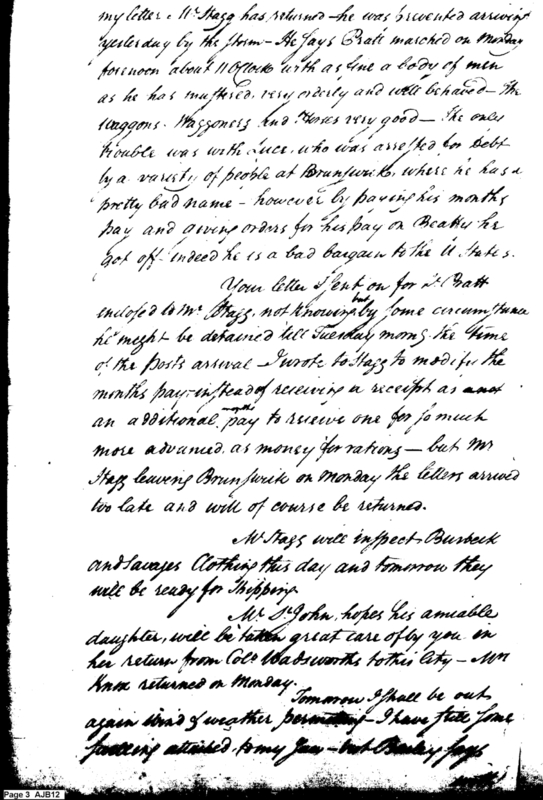 my letter. Mr Stagg has returned – he was prevented arriving
yesterday by the storm – He says Pratt marched on Monday
forenoon about 11 OClock with as fine a body of men
as he has mustered, very orderly and well behaved – The
waggons. Waggoners and Horses very good – The only
trouble was with Luce, who was arrested for Debt
by a variety of people at Brunswick, where he has a
pretty bad name – however by paying his months
pay and giving orders for his pay on Beatty he
got off indeed he is a bad bargain to the U States.
Your letter I sent on for Lt Pratt
enclosed to Mr Stagg, not knowing but by some circumstance
he might be detained till Tuesday morng the time
of the posts arrival – I wrote to Stagg to modify the
months pay – instead of receiving a receipt as
an additional months pay to receive one for so much
more advanced as money for rations – but Mr
Stagg leaving Brunswick on Monday the letters arrived
too late and will of course be returned.
Mr Stagg will inspect Burbeck
and Savages Clothing this day and tomorrow they
will be ready for Shipping
Mr St John, hopes his amiable
daughter, will be taken great care of by you in
her return from Colo Wadsworths to this City – Mrs
Knox returned on Monday.
Tomorrow I shall be out
again wind & weather permitting – I have still some
swelling attached to my Jaw – but Bailey says
Page 3 AJB12